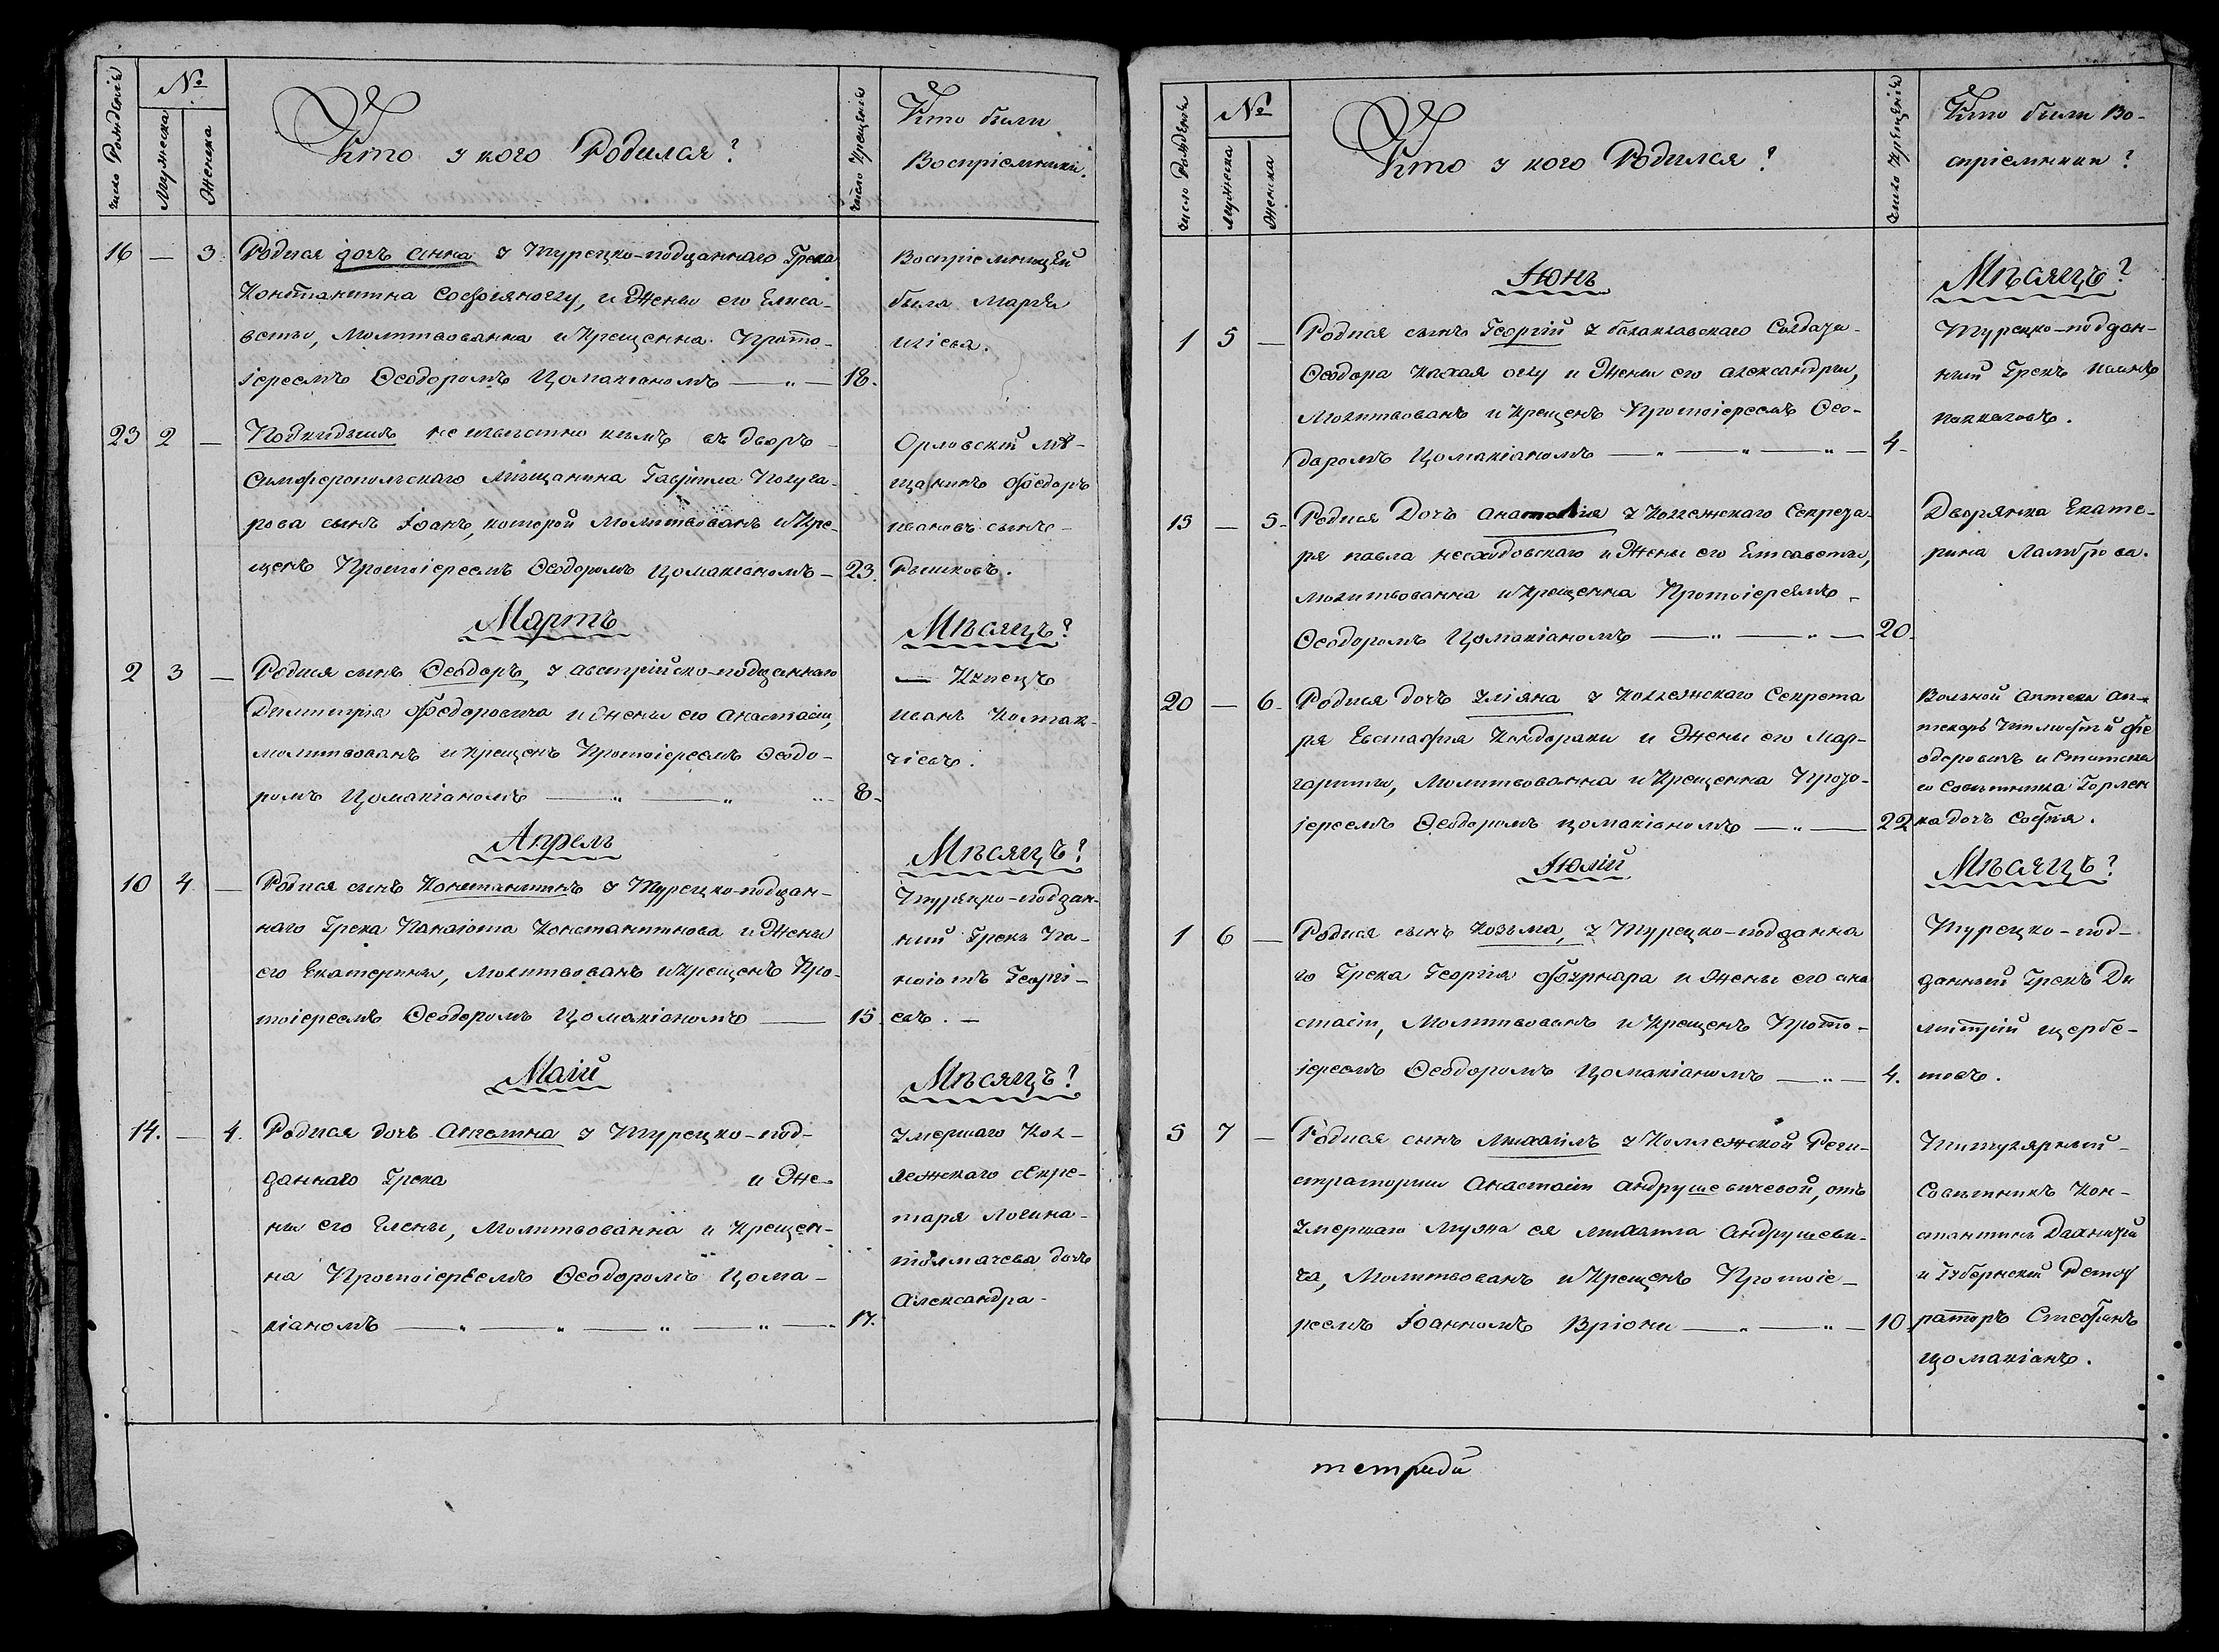 число Рожденія
№
Мужеска
Женска
Кто у кого Родился?
число Крещенія
Кто были
Воспріемники.
16 — 3 Родися дочь Анна у Турецко-подданнаго Грека
Воспріемницей
была Марѳа
Родися дочь Анна
и Жены его Елиса-
веты, Молитвованна и Крещенна Прото-
іереемъ Ѳеодоромъ Цомакіономъ — „ — 18.
23 2 — Подкидышъ неизвестно кемъ въ дворъ
Симферопольскаго Мещанина Гавріила
рова сынъ Іоанъ, которой Молитвованъ и Кре-
щенъ Протоіереемъ Ѳеодоромъ Цомакіономъ — 23.
Орловскій ме-
щанинъ Ѳедоръ
ивановъ сынъ
Мартъ
Мѣсяцъ?
2 3 — Родися сынъ Ѳеодоръ, у австрійско-подданнаго
Димитрія Ѳедоровича и Жены его Анастасіи,
молитвованъ и Крещенъ Протоіереемъ Ѳеодо-
ромъ Цомакіономъ — „ — „ 8.
— Купецъ
иванъ
Апрель
Мѣсяцъ?
10 4 — Родися сынъ Константинъ у Турецко-поддан-
наго Грека Панаіота Константинова и Жены
его Екатерины, Молитвованъ и Крещенъ Про-
тоіереемъ Ѳеодоромъ Цомакіономъ — 15
Турецко-поддан-
ный Грекъ Па-
наіотъ Георгі-
евъ. —
Маій
Мѣсяцъ?
14. — 4. Родися дочь Ангелина у Турецко-под-
даннаго Грека и Же-
ны его Елены, Молитвованна и Крещен-
на Протоіереемъ Ѳеодоромъ Цома-
кіономъ — „ — „ — „ — „ — 17.
Умершаго Кол-
лежскаго секре-
таря Логина
толмачева дочь
Александра
число Рожденія
№
Мужеска
Женска
Кто у кого Родился?
число Крещенія
Кто были Во-
спріемники?
Іюнь
Мѣсяцъ?
1 5 — Родися сынъ Георгій у балаклавскаго Солдата
Ѳеодора и Жены его Александры,
Молитвованъ и Крещенъ Протоіереемъ Ѳео-
доромъ Цомакіономъ — „ — „ — „ — 4.
Турецко-поддан-
ный Грекъ
15 — 5. Родися Дочь Анатолія у Коллежскаго Секрета-
ря павла и Жены его Елисаветы,
молитвованна и Крещенна Протоіереемъ
Ѳеодоромъ Цомакіономъ — „ — „ — 20.
Дворянка Екате-
рина Ламброва.
20 — 6. Родися дочь Уліяна у Коллежскаго Секрета
ря Евстафія Кондораки и Жены его Мар-
гариты, Молитвованна и Крещенна Прото-
іереемъ Ѳеодоромъ Цомакіономъ — „ — 22
Вольной Аптеки Ап-
текарь Ѳе
одоровичъ и Статска
го Советника Горлен
ка дочь Софія.
Іюлій
Мѣсяцъ?
1 6 — Родися сынъ Козьма, у Турецко-поддана
го Грека Георгія Фурнара и Жены его Ана
стасіи, Молитвованъ и Крещенъ Прото-
іереемъ Ѳеодоромъ Цомакіономъ — „ — 4.
Турецко-под-
данный Грекъ Ди
митрій щербе-
товъ.
5 7 — Родися сынъ Михаилъ у Коллежской Реги-
страторши Анастасіи Андрушевичевой, отъ
умершаго мужа ея Михаила Андрушеви-
ча, Молитвованъ и Крещенъ Протоіе-
реемъ Іоанномъ Вріони — „ — „ — 10
Титулярный
Советникъ Кон-
стантинъ
и Губернскій Регист
раторъ Стефанъ
Цомакіонъ.
тетради